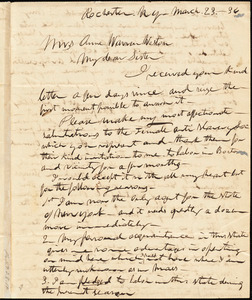 Rochester N.Y. March 23. –36
Mrs Ann Warren Weston
My dear Sister
I received your kind
letter a few days since and seize the
first moment possible to answer it.
Please make my most affectionate
salutations to the Female Anti Slavery Soc
which you represent and thank them for
their kind invitation to me to labor in Boston
and vicinity for a few months.
I could accept it with all my heart but
for the following reasons:
1. I am now the only agent for the State
of New York – and it needs greatly a dozen
more immediately.
2. My personal acquaintance in this State
gives me some advantage in operating
on mind here which I have not where I am
utterly unknown as in Mass
3. I am pledged to labor in this State during
the present season